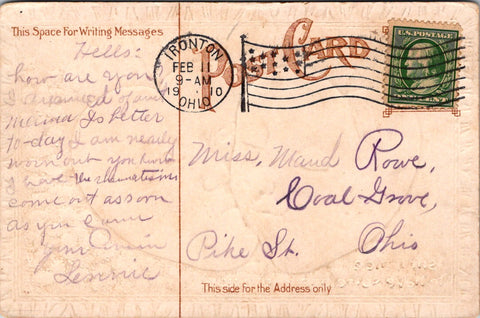 This Space For Writing Messages
POST CARD
IRONTON
FEB 11
9-AM
1910
OHIO
U.S. POSTAGE
Hello:
how are you
I
is better
to-day I am nearly
worn out you know
I have the rheumatism
come out as soon
as you can
your
Lennie
Miss, Maud Rowe,
Coal Grove,
Pike St. Ohio
This side for the Address only